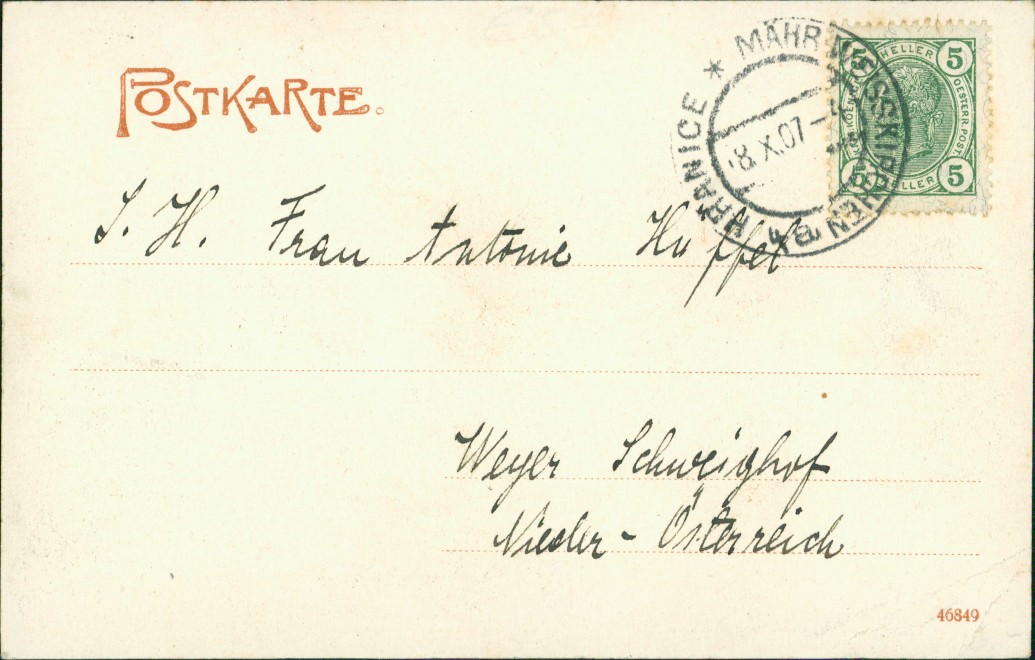 POSTKARTE.
MÄHR. WEISSKIRCHEN
* HRANICE
8.X.07
5 HELLER 5
OESTERR. POST.
5 HELLER 5
S. H. Frau Antonie Huffel
Weyer Schweighof
Nieder-Österreich
46849